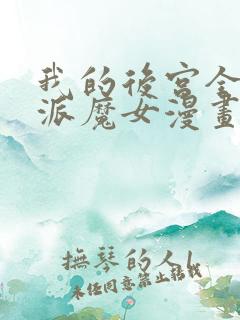 我的後宮全
派魔女漫畫
撫琴的人l
未经同意禁止转载